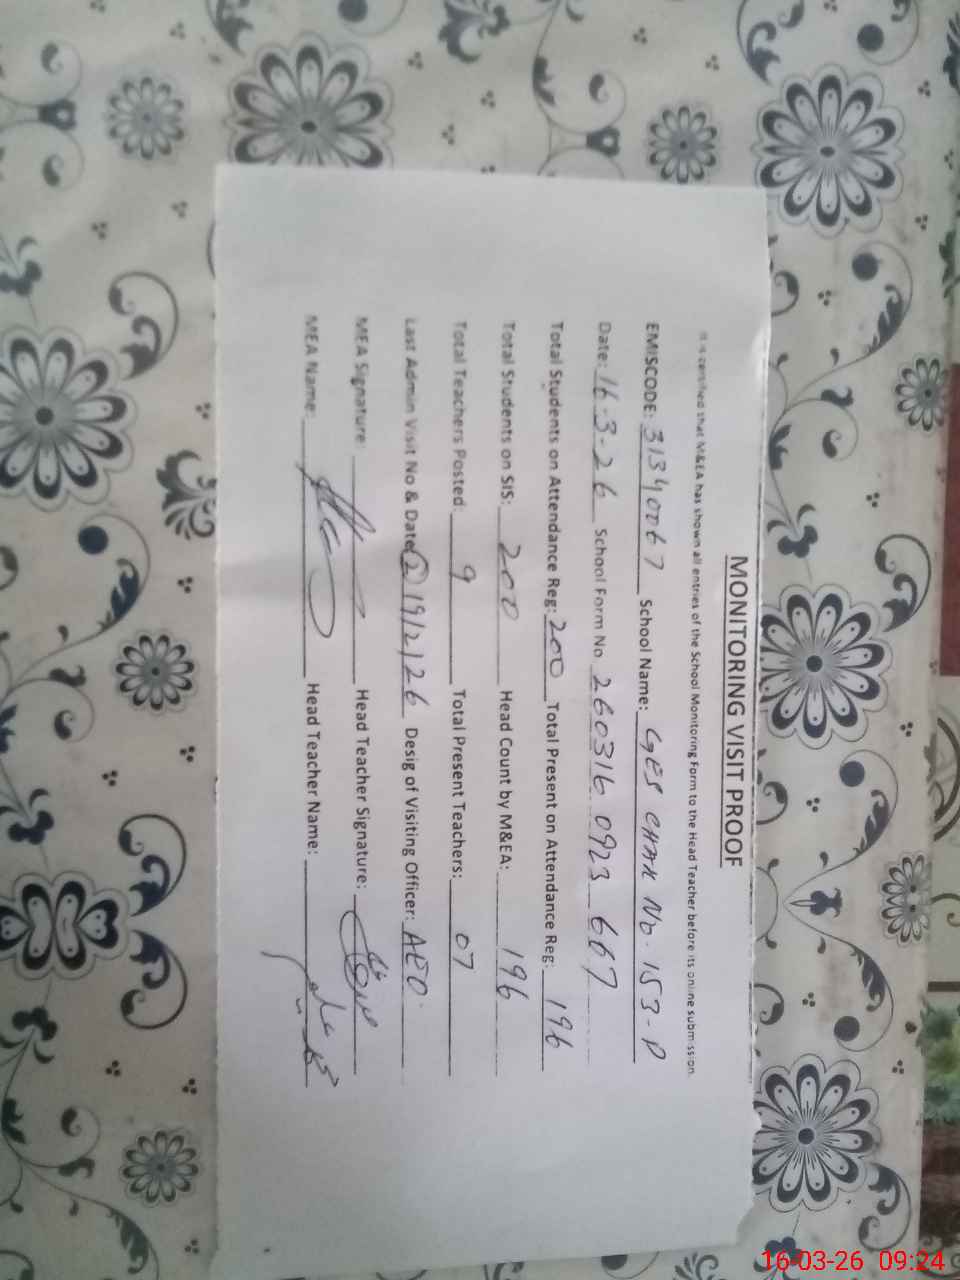 MONITORING VISIT PROOF
It is certified that M&EA has shown all entries of the School Monitoring Form to the Head Teacher before its online submission.
EMISCODE: 31340067 School Name: GES CHAK No. 153-P
Date: 16-3-26 School Form No 260316 0923 667
Total Students on Attendance Reg: 200 Total Present on Attendance Reg: 196
Total Students on SIS: 200 Head Count by M&EA: 196
Total Teachers Posted: 9 Total Present Teachers: 07
Last Admin Visit No & Date: 2 19/2/26 Desig of Visiting Officer: AEO
MEA Signature: Head Teacher Signature:
MEA Name: Head Teacher Name:
16-03-26 09:24